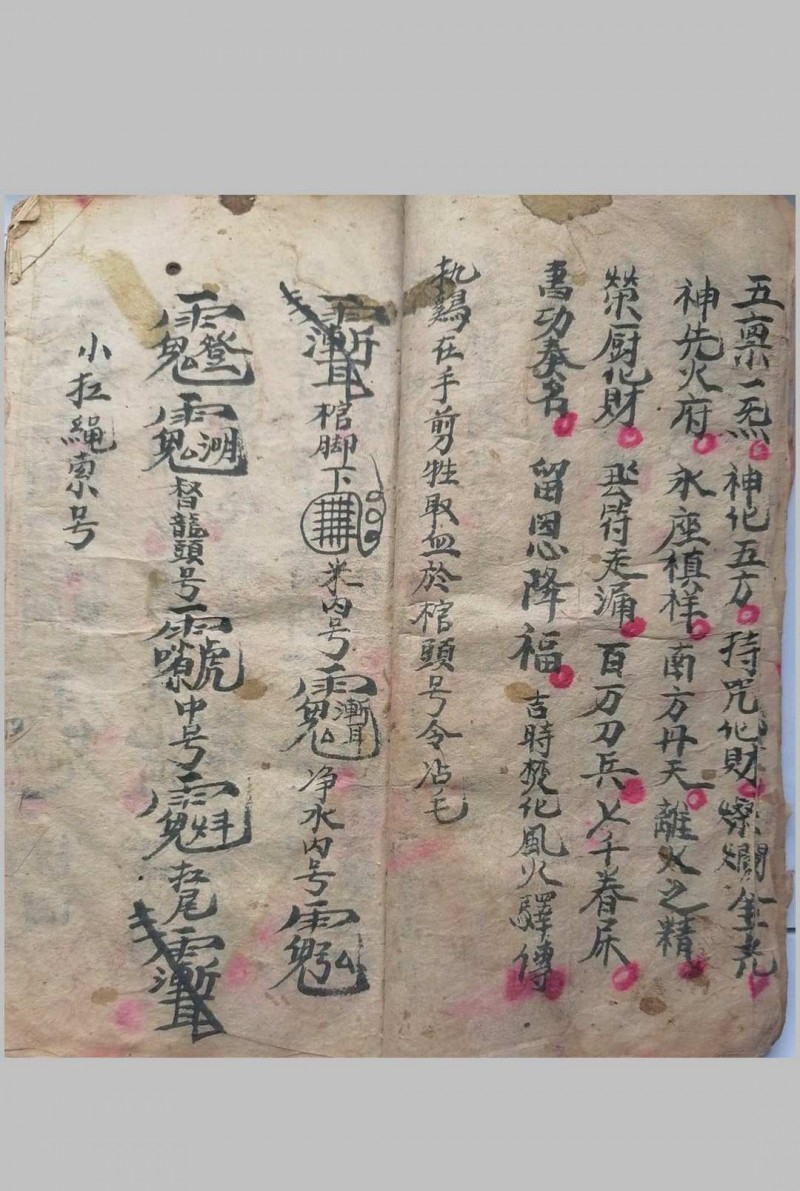 五禀一炁 神化五方 持咒化財 燦爛金光
神先火府 永座槙祥 南方丹天 離火之精
荣厨化財 云符走涌 百万刀兵 七千眷
功奏名 留恩降福 吉時焚化風火驛傳
执鷄在手剪牲取血於棺頭号令沾毛
棺脚下 米内号 净水内号
督龍頭号 中号 扛尾
小扛繩索号